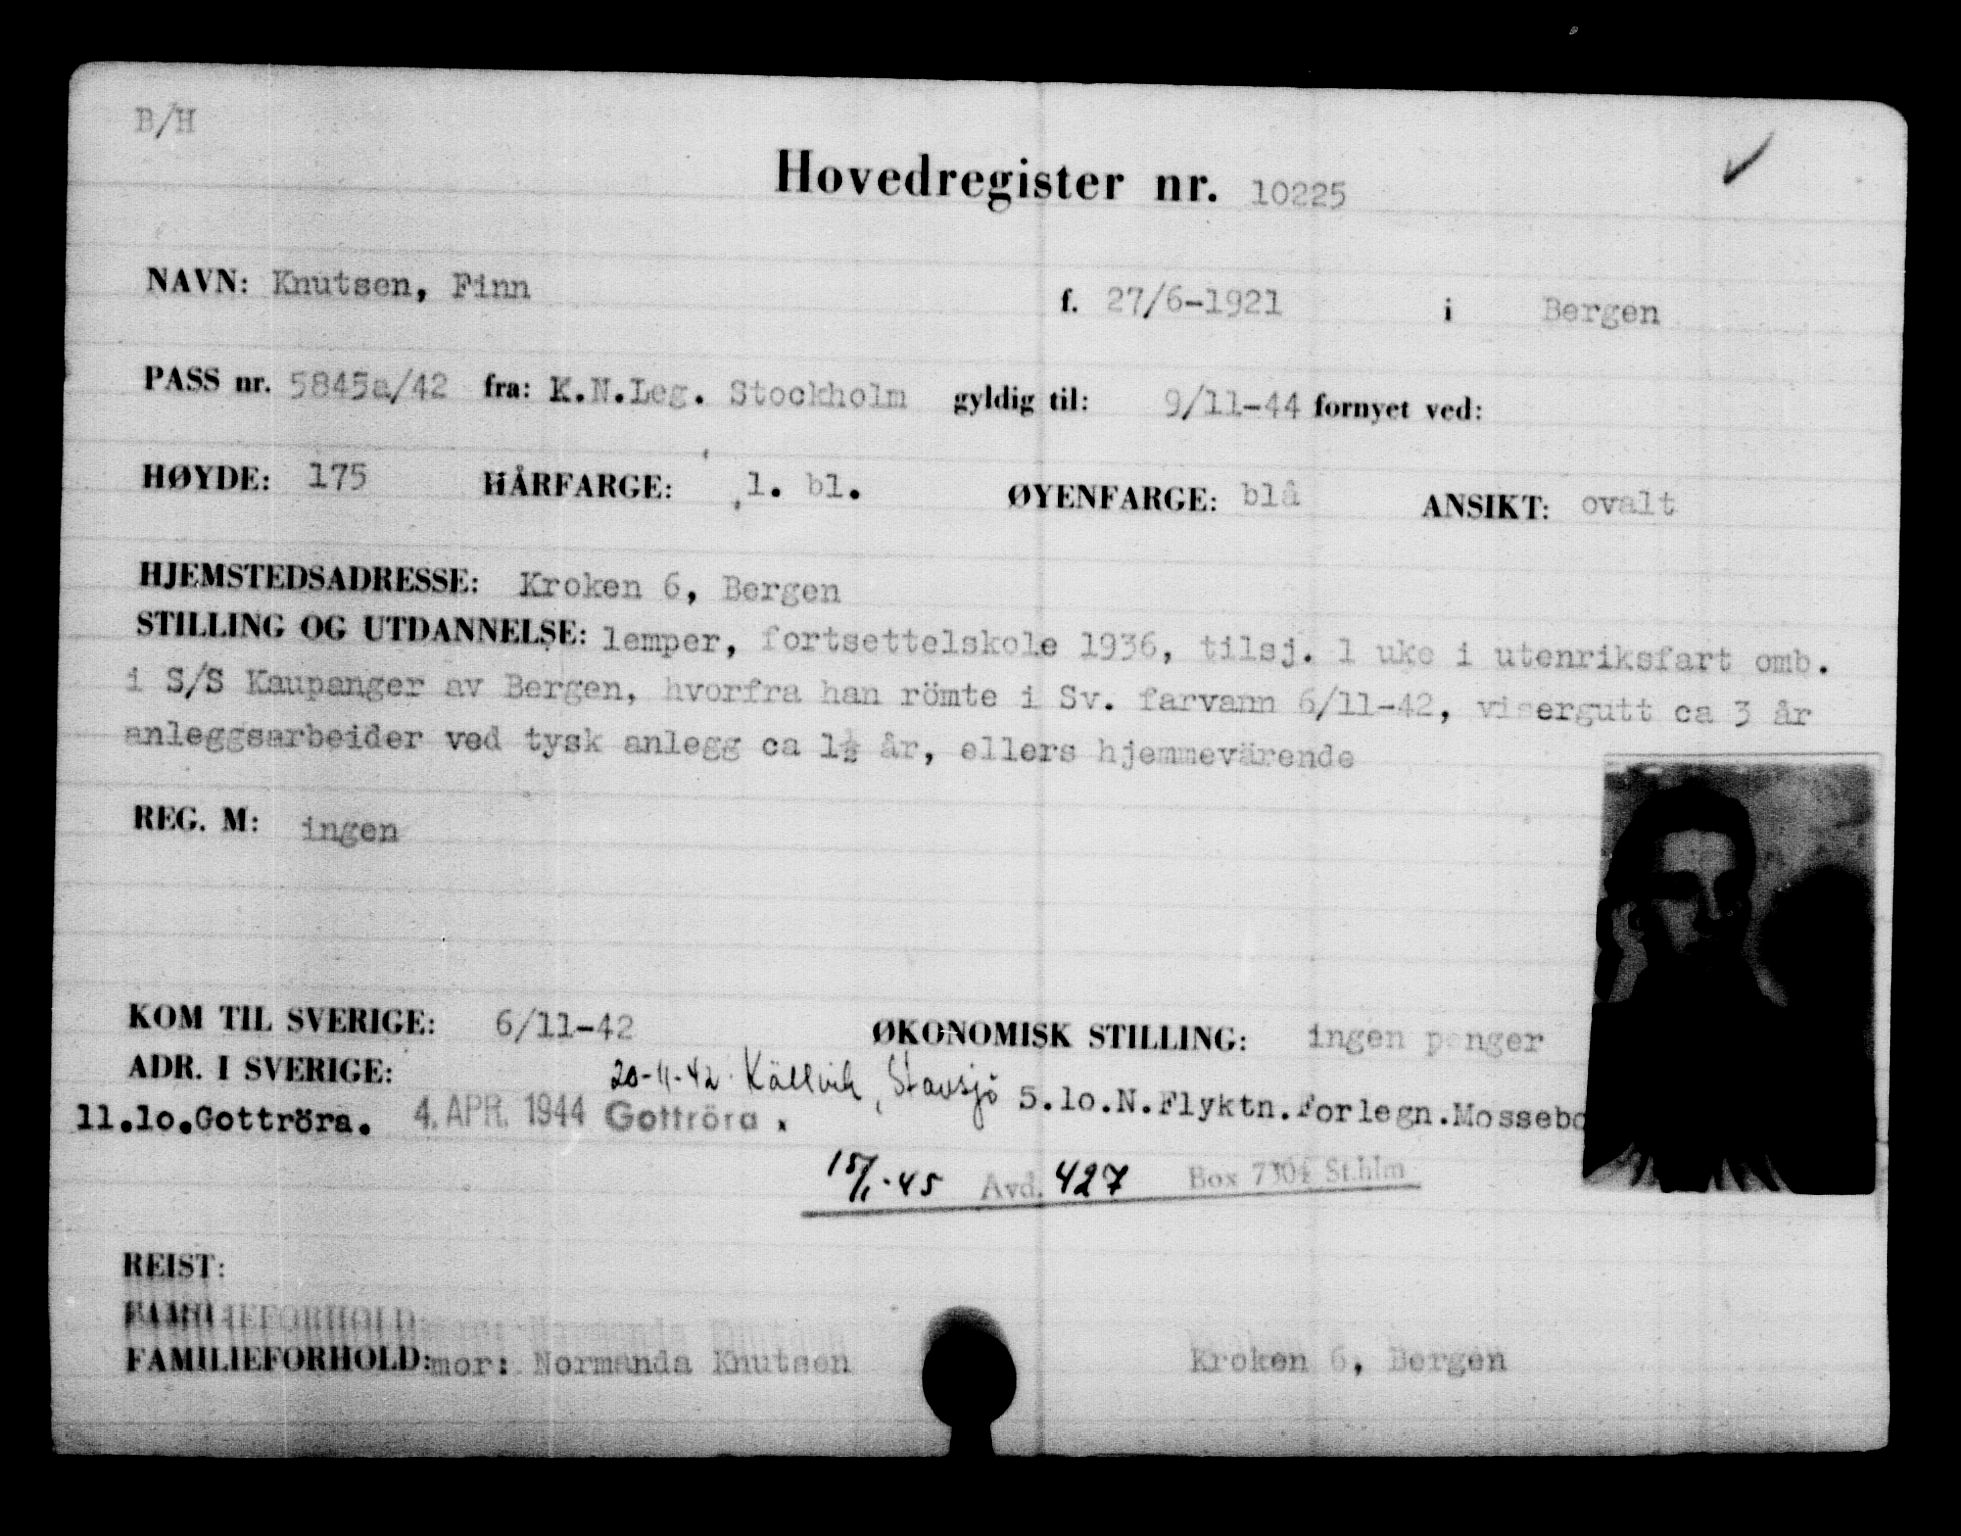 B/H
Hovedregister nr. 10225
NAVN: Knutsen, Finn f. 27/6-1921 i Bergen
PASS nr. 5845a/42 fra: K.N.Leg. Stockholm gyldig til: 9/11-44 fornyet ved:
HØYDE: 175 HÅRFARGE: l. bl. ØYENFARGE: blå ANSIKT: ovalt
HJEMSTEDSADRESSE: Kroken 6, Bergen
STILLING OG UTDANNELSE: lemper, fortsettelskole 1936, tilsj. 1 uke i utenriksfart omb.
i S/S Kaupanger av Bergen, hvorfra han römte i Sv. farvann 6/11-42, visergutt ca 3 år
anleggsarbeider ved tysk anlegg ca 1½ år, ellers hjemmevärende
REG. M: ingen
KOM TIL SVERIGE: 6/11-42 ØKONOMISK STILLING: ingen penger
ADR. I SVERIGE: 20-11-42. Källvik, Stavsjö 5.lo.N.Flyktn.Forlegn.Mossebo
11.lo.Gottröra. 4. APR. 1944 Gottröra.
15/1-45 Avd. 427 Box 730½ St.hlm
REIST:
FAMILIEFORHOLD
FAMILIEFORHOLD: mor: Normanda Knutsen Kroken 6, Bergen